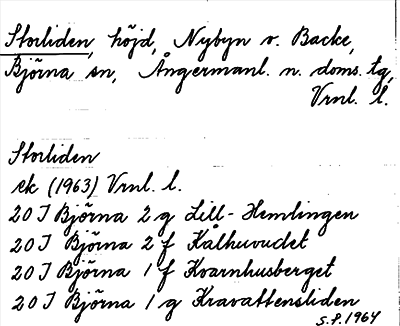 Storliden, höjd, Nybyn o. Backe,
Björna sn, Ångermanl. n. doms. tg,
Vrnl. l.
Storliden
ek (1963) Vrnl. l.
20 J Björna 2 g Lill-Hemlingen
20 J Björna 2 f Kålhuvudet
20 J Björna 1 f Kvarnhusberget
20 J Björna 1 g Kravattensliden
S.P. 1964